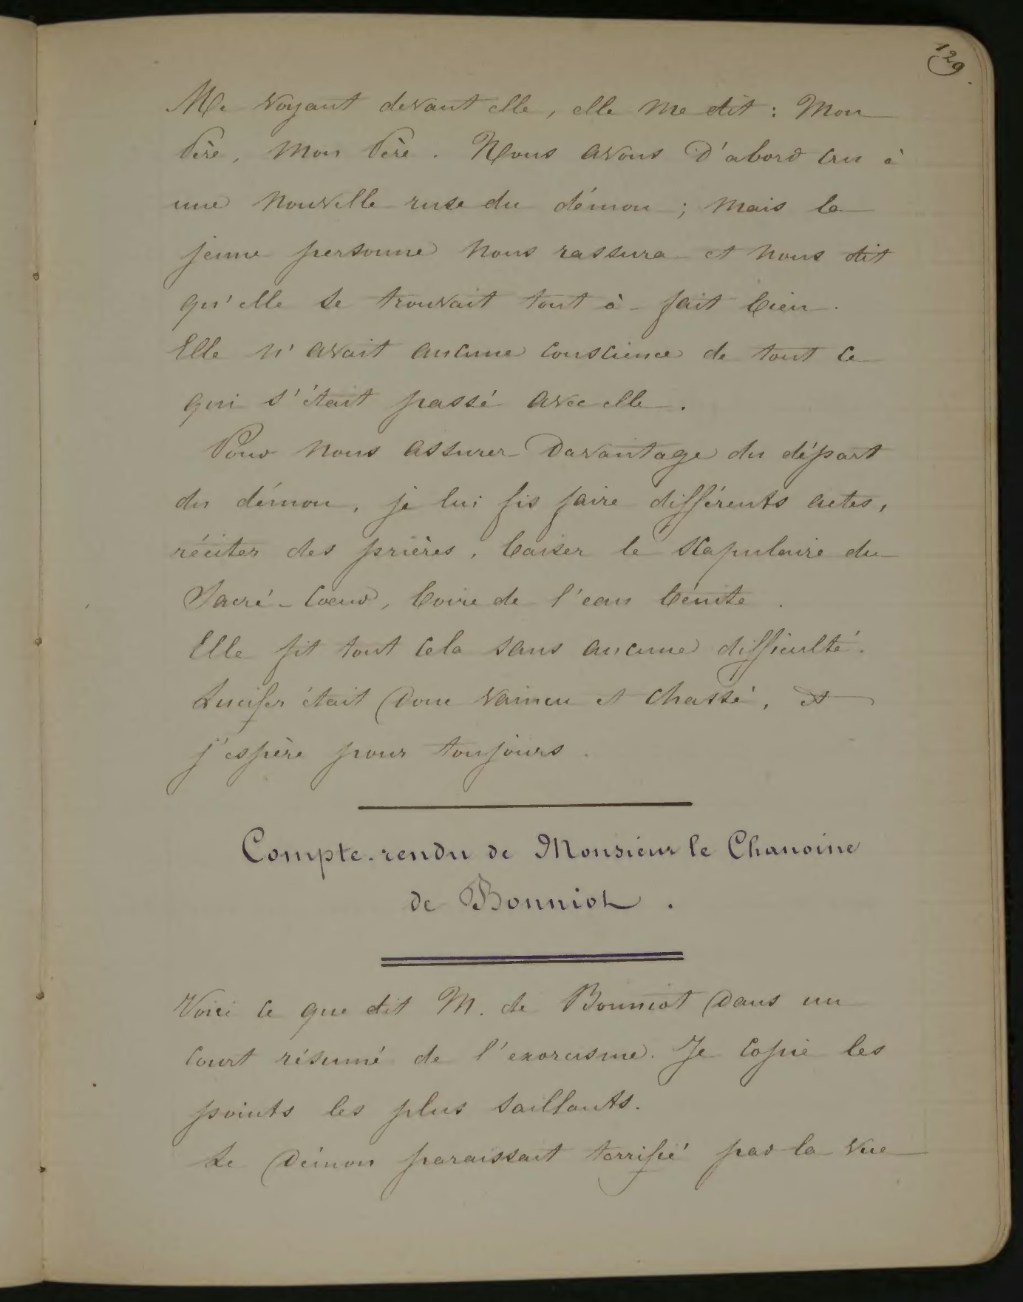 129.
Me voyant devant elle, elle me dit : Mon
Père, Mon Père. Nous avons d'abord cru à
une nouvelle ruse du démon ; mais la
jeune personne nous rassura et nous dit
qu'elle se trouvait tout à-fait bien.
Elle n'avait aucune conscience de tout ce
qui s'était passé avec elle.
Pour nous assurer davantage du départ
du démon, je lui fis faire différents actes,
réciter des prières, baiser le scapulaire du
Sacré-Coeur, boire de l'eau bénite.
Elle fit tout cela sans aucune difficulté.
Lucifer était donc vaincu et chassé, et
j'espère pour toujours.
Compte-rendu de Monsieur le Chanoine
de Bonniot.
Voici ce que dit M. de Bonniot dans un
court résumé de l'exorcisme. Je copie les
points les plus saillants.
Le démon paraissait terrifié par la vue